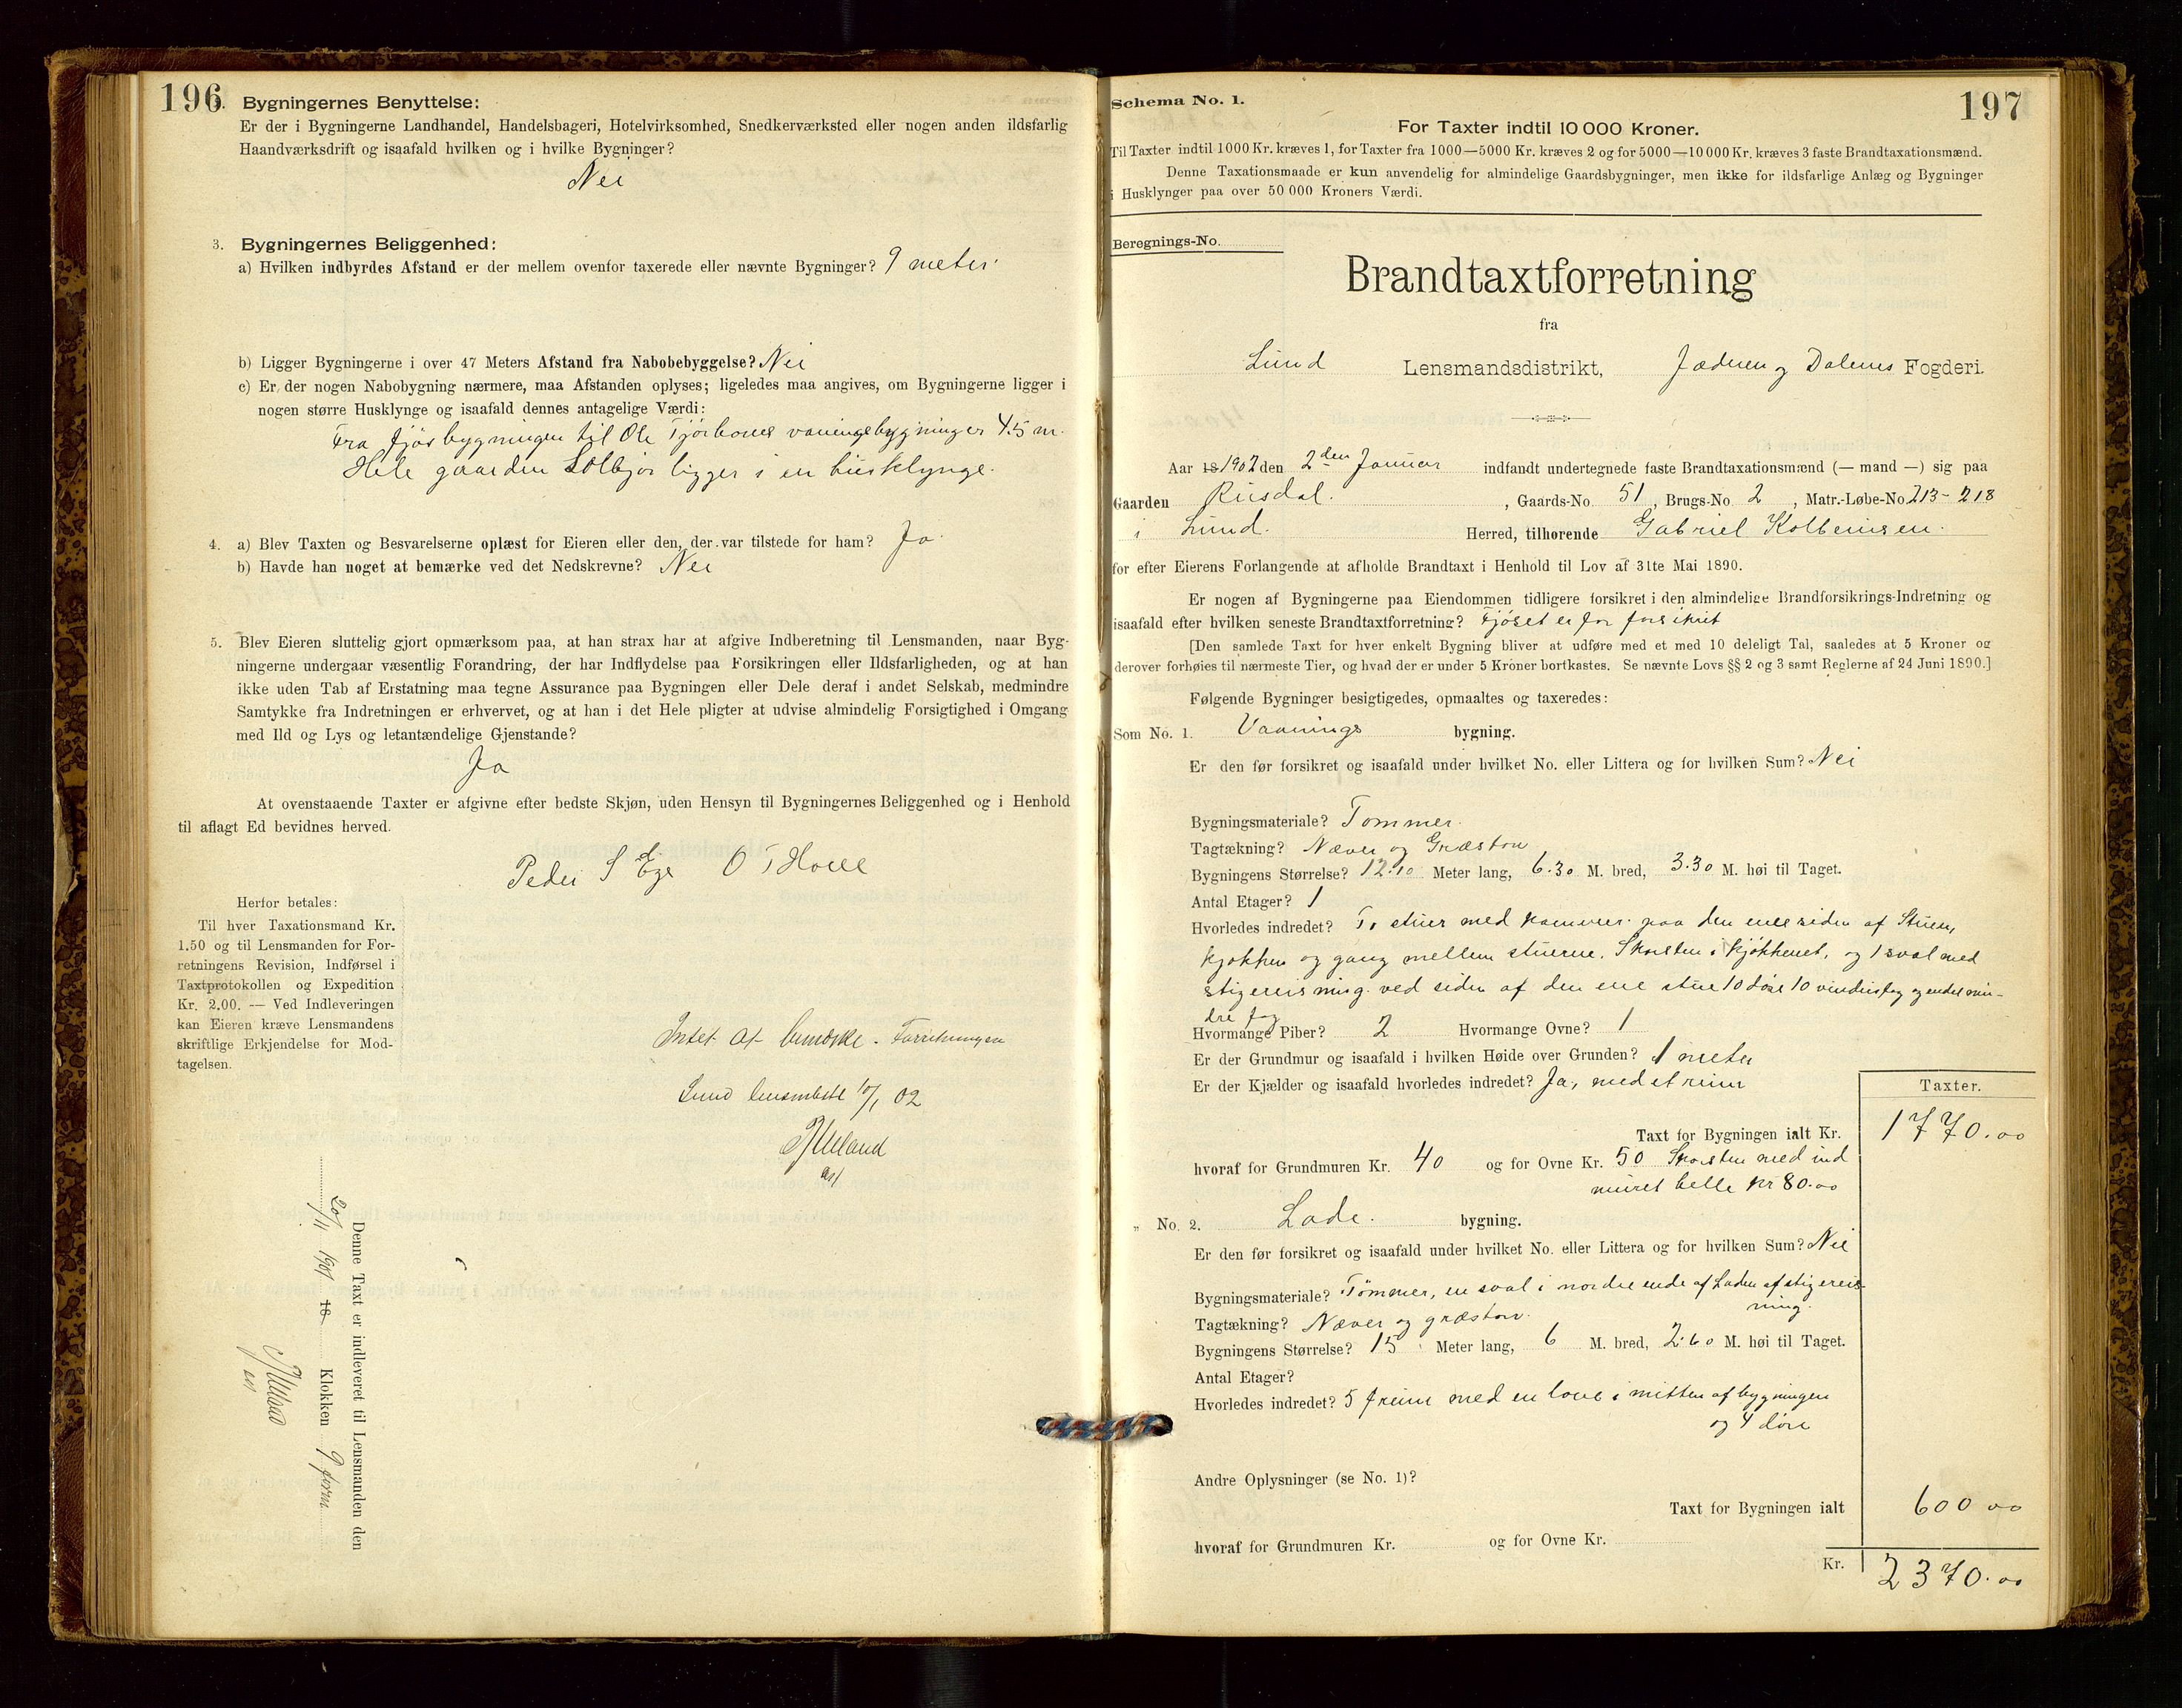 196. Bygningernes Benyttelse:
Er der i Bygningerne Landhandel, Handelsbageri, Hotelvirksomhed, Snedkerværksted eller nogen anden ildsfarlig
Haandværksdrift og isaafald hvilken og i hvilke Bygninger?
Nei
3. Bygningernes Beliggenhed:
a) Hvilken indbyrdes Afstand er der mellem ovenfor taxerede eller nævnte Bygninger? 9 meter
b) Ligger Bygningerne i over 47 Meters Afstand fra Nabobebyggelse? Nei
c) Er der nogen Nabobygning nærmere, maa Afstanden oplyses; ligeledes maa angives, om Bygningerne ligger i
nogen større Husklynge og isaafald dennes antagelige Værdi:
Fra fjøsbygningen til Ole vaaningsbygning er 4.5 m.
Hele gaarden ligger i en husklynge.
4. a) Blev Taxten og Besvarelserne oplæst for Eieren eller den, der var tilstede for ham? Ja
b) Havde han noget at bemærke ved det Nedskrevne? Nei
5. Blev Eieren sluttelig gjort opmærksom paa, at han strax har at afgive Indberetning til Lensmanden, naar Byg-
ningerne undergaar væsentlig Forandring, der har Indflydelse paa Forsikringen eller Ildsfarligheden, og at han
ikke uden Tab af Erstatning maa tegne Assurance paa Bygningen eller Dele deraf i andet Selskab, medmindre
Samtykke fra Indretningen er erhvervet, og at han i det Hele pligter at udvise almindelig Forsigtighed i Omgang
med Ild og Lys og letantændelige Gjenstande?
Ja
At ovenstaaende Taxter er afgivne efter bedste Skjøn, uden Hensyn til Bygningernes Beliggenhed og i Henhold
til aflagt Ed bevidnes herved.
Peder S Ege O T Hove
Herfor betales:
Til hver Taxationsmand Kr.
1.50 og til Lensmanden for For-
retningens Revision, Indførsel i
Taxtprotokollen og Expedition
Kr. 2.00. — Ved Indleveringen
kan Eieren kræve Lensmandens
skriftlige Erkjendelse for Mod-
tagelsen.
Intet at bemærke. Forretningen
Lund lensmbst 10/1 02
Denne Taxt er indleveret til Lensmanden den
20/11 1901 18 Klokken 9 form
Schema No. 1.
197
For Taxter indtil 10 000 Kroner.
Til Taxter indtil 1000 Kr. kræves 1, for Taxter fra 1000—5000 Kr. kræves 2 og for 5000—10 000 Kr. kræves 3 faste Brandtaxationsmænd.
Denne Taxationsmaade er kun anvendelig for almindelige Gaardsbygninger, men ikke for ildsfarlige Anlæg og Bygninger
i Husklynger paa over 50 000 Kroners Værdi.
Beregnings-No.
Brandtaxtforretning
fra
Lund Lensmandsdistrikt, Jæderen og Dalernes Fogderi.
Aar 18 1902 den 2den Januar indfandt undertegnede faste Brandtaxationsmænd (— mand —) sig paa
Gaarden Rusdal. , Gaards-No. 51, Brugs-No. 2, Matr.-Løbe-No. 213-218
i Lund. Herred, tilhørende Gabriel Kolbeinsen.
for efter Eierens Forlangende at afholde Brandtaxt i Henhold til Lov af 31te Mai 1890.
Er nogen af Bygningerne paa Eiendommen tidligere forsikret i den almindelige Brandforsikrings-Indretning og
isaafald efter hvilken seneste Brandtaxtforretning? Fjøset er før forsikret
[Den samlede Taxt for hver enkelt Bygning bliver at udføre med et med 10 deleligt Tal, saaledes at 5 Kroner og
derover forhøies til nærmeste Tier, og hvad der er under 5 Kroner bortkastes. Se nævnte Lovs §§ 2 og 3 samt Reglerne af 24 Juni 1890.]
Følgende Bygninger besigtigedes, opmaaltes og taxeredes:
Som No. 1. Vaanings bygning.
Er den før forsikret og isaafald under hvilket No. eller Littera og for hvilken Sum? Nei
Bygningsmateriale? Tømmer.
Tagtækning? Næver og Græstorv
Bygningens Størrelse? 12.10 Meter lang, 6.30 M. bred, 3.30 M. høi til Taget.
Antal Etager? 1
Hvorledes indredet? To stuer med kammer paa den ene siden af Stuen,
kjøkken og gang mellem stuerne. Skorsten i kjøkkenet, og 1 sval med
stigereisning ved siden af den ene stue 10 døre 10 vinduesfag og endel min-
dre fag
Hvormange Piber? 2 Hvormange Ovne? 1
Er der Grundmur og isaafald i hvilken Høide over Grunden? 1 meter
Er der Kjælder og isaafald hvorledes indredet? Ja, med et reim
Taxter.
Taxt for Bygningen ialt Kr. 1770.00
hvoraf for Grundmuren Kr. 40 og for Ovne Kr. 50 Skorsten med ind
muret helle kr 80.00
„ No. 2. Lade. bygning.
Er den før forsikret og isaafald under hvilket No. eller Littera og for hvilken Sum? Nei
Bygningsmateriale? Tømmer, en sval i nordre ende af Laden af stigereis-
ning.
Tagtækning? Næver og græstorv.
Bygningens Størrelse? 15 Meter lang, 6 M. bred, 2.60 M. høi til Taget.
Antal Etager?
Hvorledes indredet? 5 reim med en love i mitten af bygningen
og 4 døre
Andre Oplysninger (se No. 1)?
Taxt for Bygningen ialt 600 00
hvoraf for Grundmuren Kr. og for Ovne Kr.
Kr. 2370.00